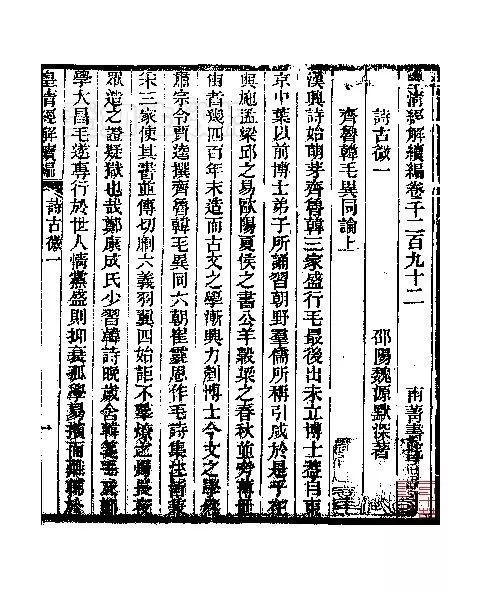 皇清經解續編卷千二百九十二 南菁書院
詩古微一 邵陽魏源默深著
齊魯韓毛異同論上
漢興詩始萌芽齊魯韓三家盛行毛最後出未立博士蓋自東
京中葉以前博士弟子所誦習朝野羣儒所稱引咸於是乎在
與施孟梁邱之易歐陽夏侯之書公羊穀梁之春秋並旁薄
宙者幾四百年末造而古文之學漸興力剷博士今文之學然
肅宗令賈逵撰齊魯韓毛異同六朝崔靈恩作毛詩集注皆兼
采三家使其書並傳切劘六義羽翼四始詎不羣燎之燭長夜
眾造之證疑獄也哉鄭康成氏少習韓詩晚歲舍韓箋毛
學大昌毛遂專行於世人情黨盛則抑衰孤學易擯而難輔於
皇清經解續編 詩古微一 一